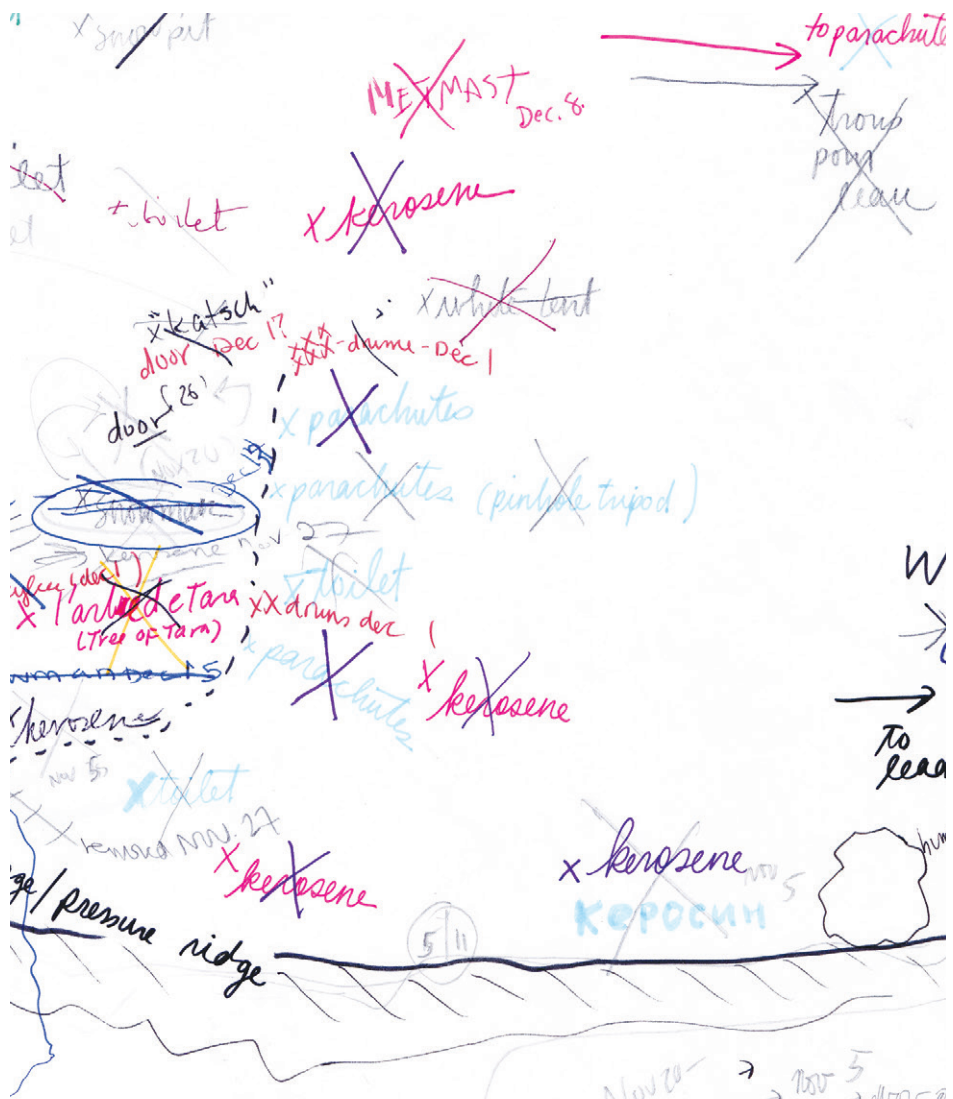 x snow pit
to parachute
MET MAST
Dec. 8.
x trous
pour
l'eau
x toilet
x kerosene
x white tent
"katsch"
door Dec 1?
xxx-drums-Dec 1
door
x parachutes
x parachutes (pinhole tripod)
kerosene nov 27
x toilet
x l'arbre de Tara
(Tree of Tara)
xx drums dec 1
x parachutes
x kerosene
x kerosene
To
lead
Nov 5
x toilet
removed Nov. 27
x kerosene
x kerosene
Nov 5
керосин
pressure ridge
5 11
Nov 20
Nov 5